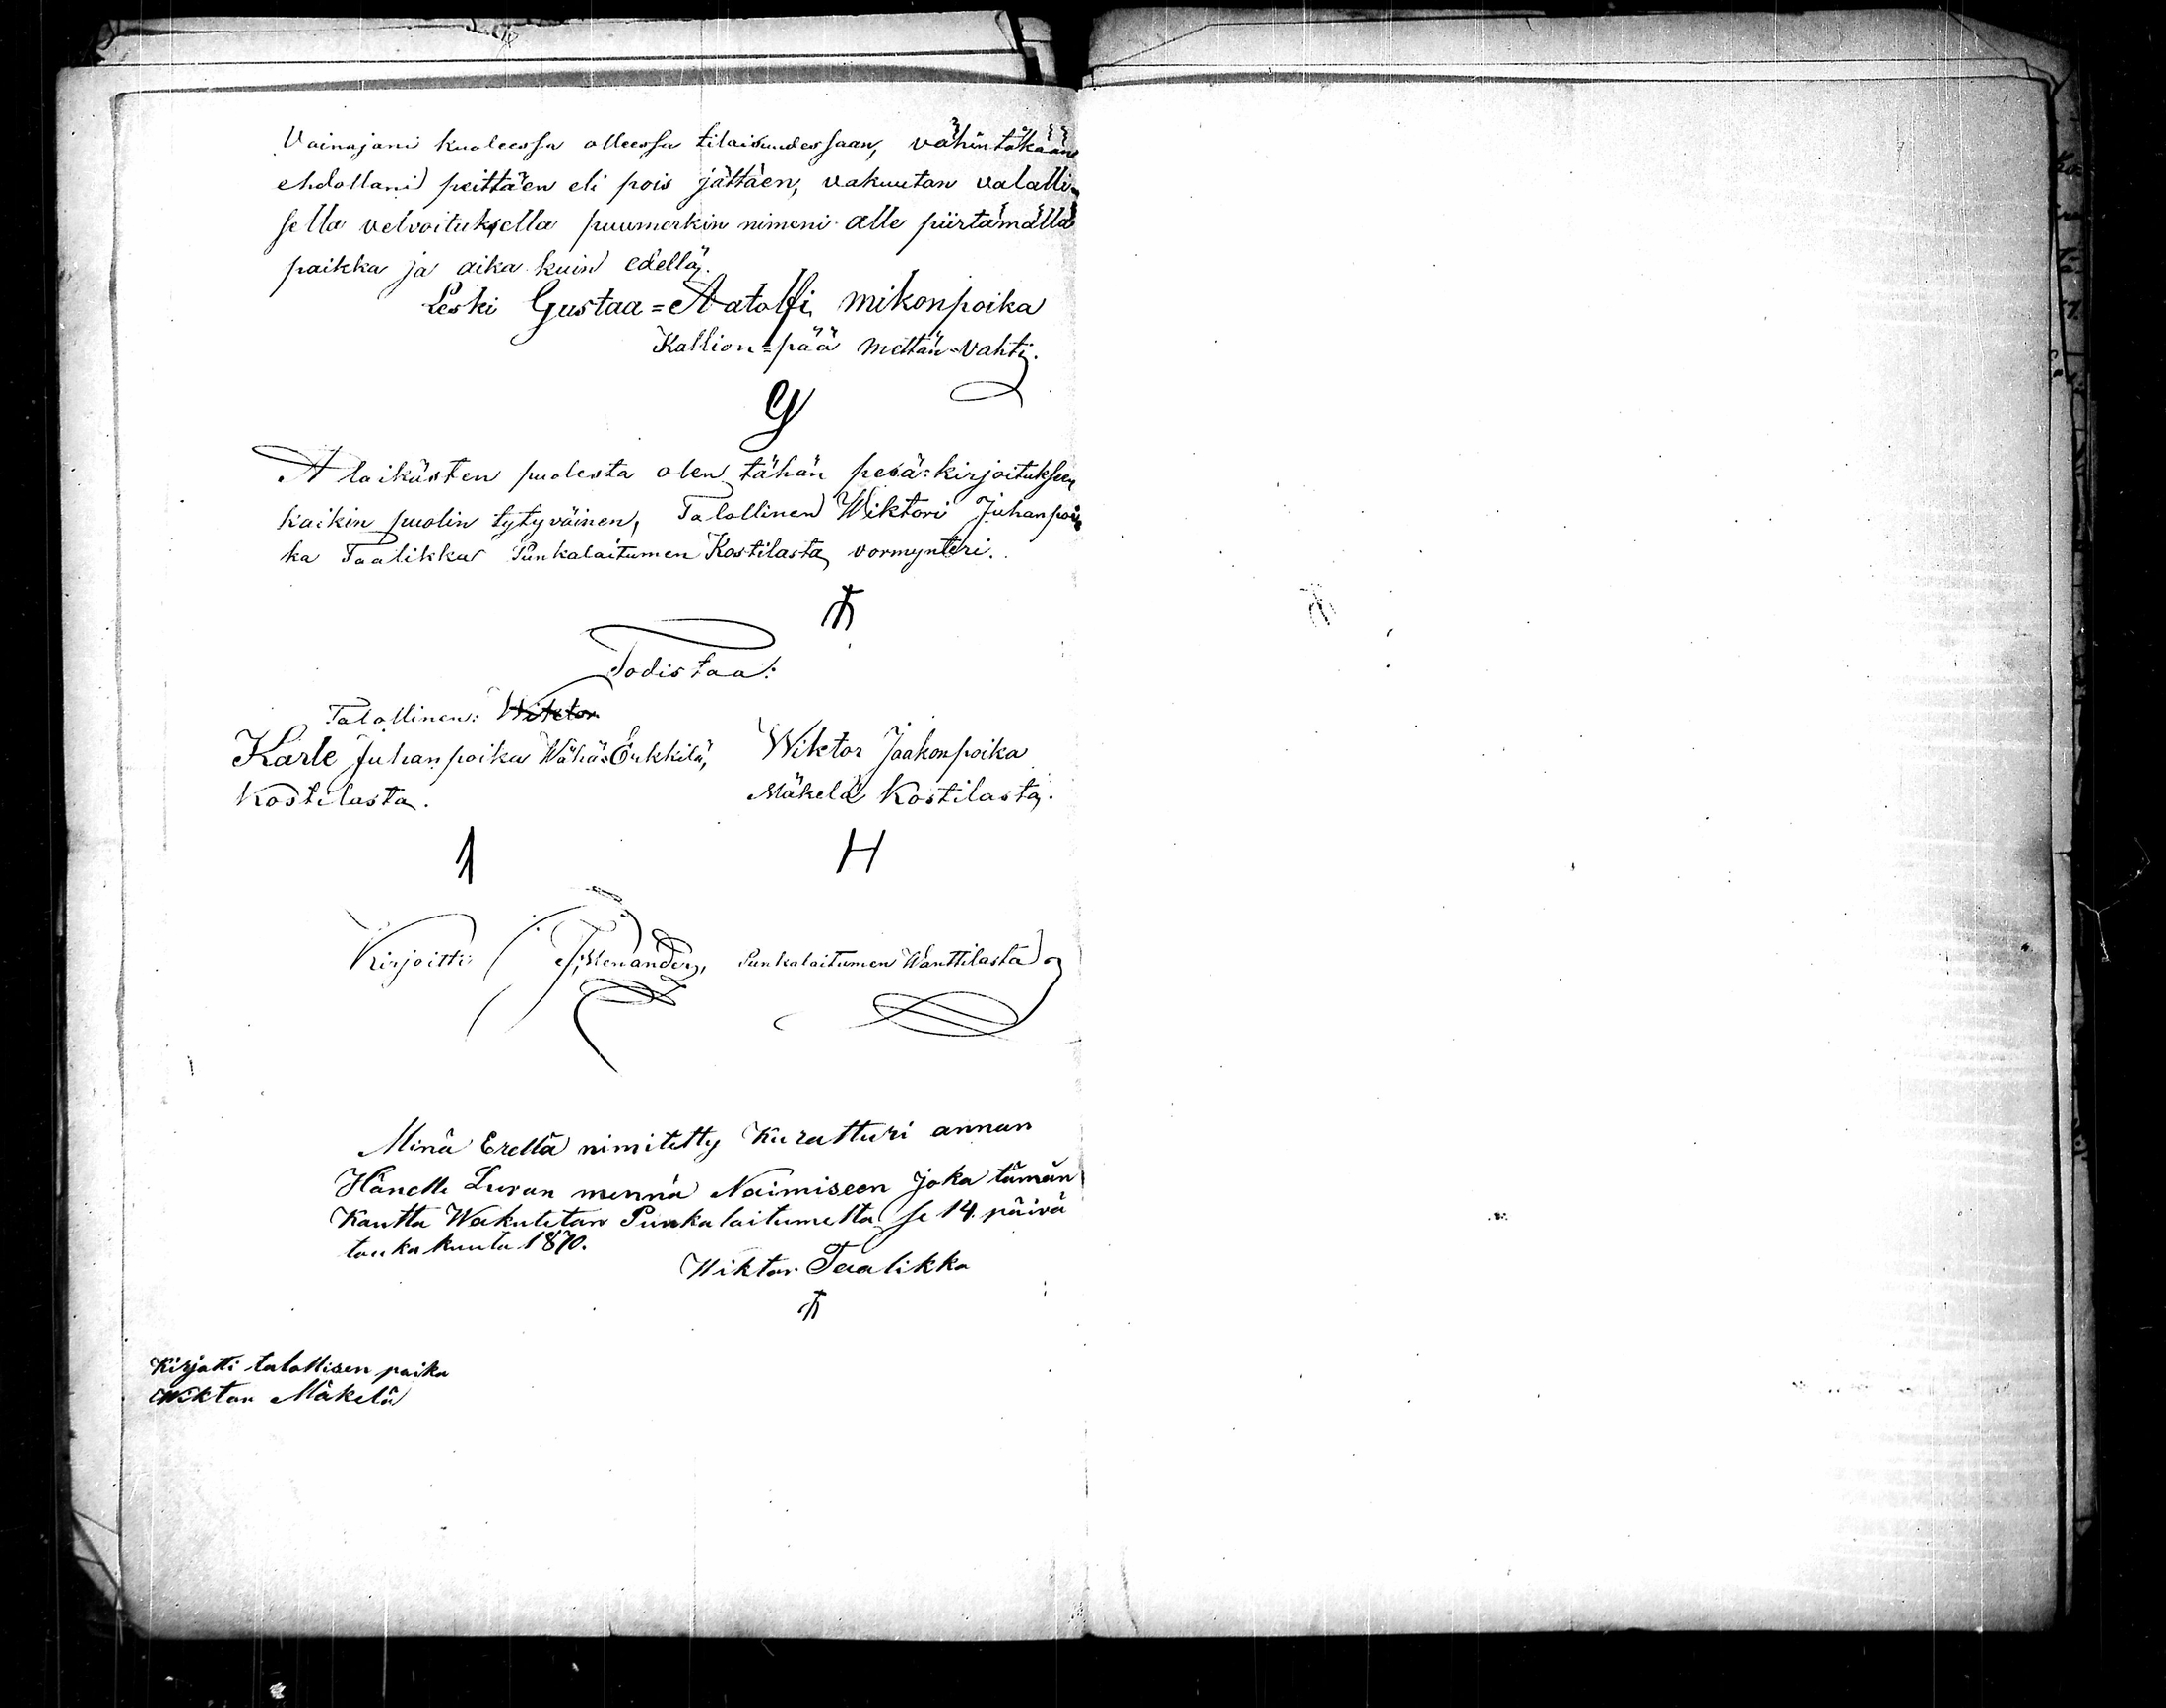 Vainajani kuoleessa olleessa tilaisuudessaan, vähintäkään
ehdollani peittäen eli pois jättäen, vakuutan valalli-
sella velvoituksella puumerkin nimeni alle piirtämällä
paikka ja aika kuin edellä.
Leski Gustaa=Aatolfi mikonpoika
Kallion=pää mettän=vahti.
G
Alaikästen puolesta olen tähän pesä=kirjoitukseen
kaikin puolin tytyväinen, Talollinen Wiktori Juhanpoi-
ka Taalikka Punkalaitumen Kostilasta, vormynteri.
Todistaa:
Talollinen: Wiktor
Karle Juhanpoika Wähä=Erkkilä, Wiktor Jaakonpoika
Kostilasta. Mäkelä Kostilasta.
H
Kirjoitti: Menander, Punkalaitumen Wanttilasta
Minä Erellä nimitetty Kuratturi annan
Hänelle Luvan mennä Naimiseen joka tämän
Kautta Wakutetan Punkalaitumella se 14. päivä
toukokuuta 1870.
Wiktor Taalikka
Kirjotti talollisen poika
Wiktor Mäkelä